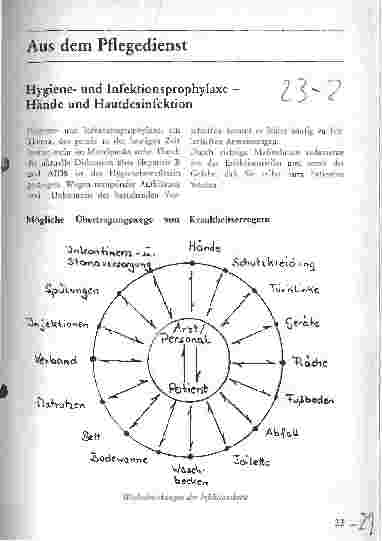 Aus dem Pflegedienst
Hygiene- und Infektionsprophylaxe –
Hände und Hautdesinfektion
23-2
Hygiene- und Infektionsprophylaxe, ein
Thema, das gerade in der heutigen Zeit
immer mehr im Mittelpunkt steht. Durch
die aktuelle Diskussion über Hepatitis B
und AIDS ist das Hygienebewußtsein
gestiegen. Wegen mangelnder Aufklärung
und Unkenntnis der bestehenden Vor-
schriften kommt es leider häufig zu
Durch richtige Maßnahmen reduzieren
wir das Infektionsrisiko und somit die
Gefahr, daß Sie selbst zum Patienten
werden.
Mögliche Übertragungswege von Krankheitserregern
Hände
Inkontinenz- u.
Stomaversorgung
Schutzkleidung
Spülungen
Türklinke
Injektionen
Geräte
Arzt/
Personal
Verband
Fläche
Patient
Matratzen
Fußboden
Bett
Abfall
Badewanne
Toilette
Wasch-
becken